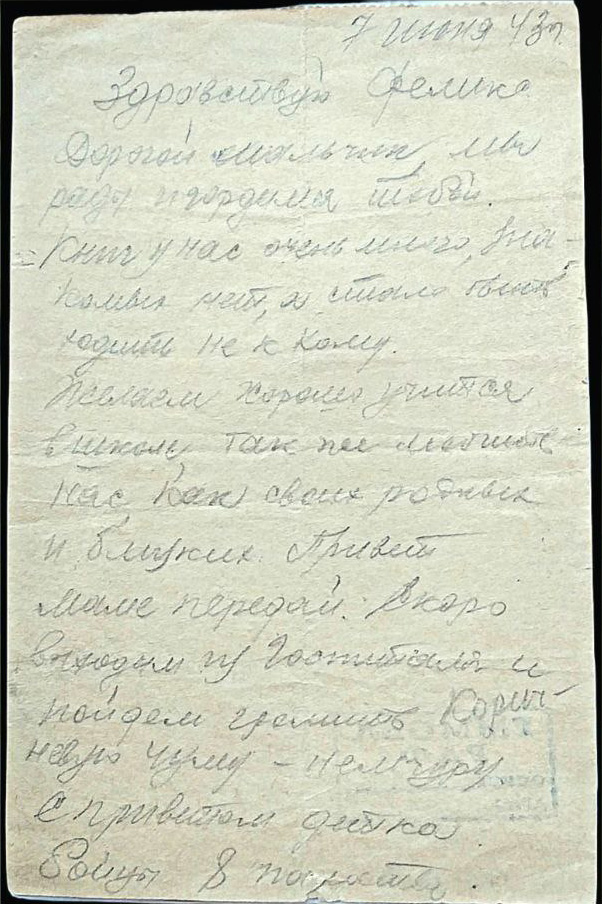 7 июня 43 г.
Здравствуй Феликс
Дорогой мальчик, мы
рады и гордимся тобой.
Книг у нас очень много, зна-
комых нет, а стало быть
ходить не к кому.
Желаем хорошо учится
в школе, так же любить
нас как своих родных
и близких. Привет
маме передай. Скоро
выходим из госпиталя и
пойдем громить корич-
невую чуму - немчуру
С приветом детка
Бойцы 8 палаты.